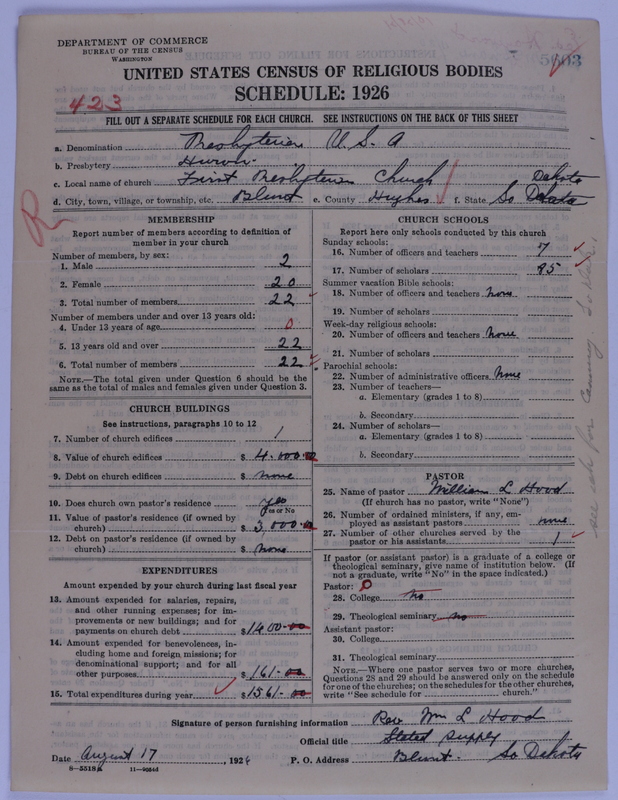 DEPARTMENT OF COMMERCE
BUREAU OF THE CENSUS
WASHINGTON
UNITED STATES CENSUS OF RELIGIOUS BODIES
SCHEDULE: 1926
423
FILL OUT A SEPARATE SCHEDULE FOR EACH CHURCH. SEE INSTRUCTIONS ON THE BACK OF THIS SHEET
a. Denomination Presbyterian U. S. A
b. Presbytery Huron
c. Local name of church First Presbyterian Church
d. City, town, village, or township, etc. Blunt e. County Hughes f. State So Dakota Dakota
R
MEMBERSHIP
Report number of members according to definition of member in your church
Number of members, by sex:
1. Male 2
2. Female 20
3. Total number of members 22
Number of members under and over 13 years old:
4. Under 13 years of age 0
5. 13 years old and over 22
6. Total number of members 22
NOTE.—The total given under Question 6 should be the
same as the total of males and females given under Question 3.
CHURCH BUILDINGS
See instructions, paragraphs 10 to 12
7. Number of church edifices 1
8. Value of church edifices $ 4.000.00
9. Debt on church edifices $ none
10. Does church own pastor's residence yes
Yes or No
11. Value of pastor's residence (if owned by
church) $ 3,000.00
12. Debt on pastor's residence (if owned by
church) $ none
EXPENDITURES
Amount expended by your church during last fiscal year
13. Amount expended for salaries, repairs,
and other running expenses; for im-
provements or new buildings; and for
payments on church debt $ 1400-00
14. Amount expended for benevolences, in-
cluding home and foreign missions; for
denominational support; and for all
other purposes $ 161-00
15. Total expenditures during year $ 1561-00
CHURCH SCHOOLS
Report here only schools conducted by this church
Sunday schools:
16. Number of officers and teachers 7
17. Number of scholars 85
Summer vacation Bible schools:
18. Number of officers and teachers none
19. Number of scholars
Week-day religious schools:
20. Number of officers and teachers None
21. Number of scholars
Parochial schools:
22. Number of administrative officers None
23. Number of teachers—
a. Elementary (grades 1 to 8)
b. Secondary
24. Number of scholars—
a. Elementary (grades 1 to 8)
b. Secondary
PASTOR
25. Name of pastor William L Hood
(If church has no pastor, write "None")
26. Number of ordained ministers, if any, em-
ployed as assistant pastors none
27. Number of other churches served by the
pastor or his assistants 1
If pastor (or assistant pastor) is a graduate of a college or
theological seminary, give name of institution below. (If
not a graduate, write "No" in the space indicated.)
Pastor: 0
28. College No
29. Theological seminary no
Assistant pastor:
30. College
31. Theological seminary
NOTE.—Where one pastor serves two or more churches,
Questions 28 and 29 should be answered only on the schedule
for one of the churches; on the schedules for the other churches,
write "See schedule for church."
Signature of person furnishing information Rev Wm L Hood
Official title Stated Supply
Date August 17, 1926 P. O. Address Blunt. So Dakota
8—5518a 11—9054d